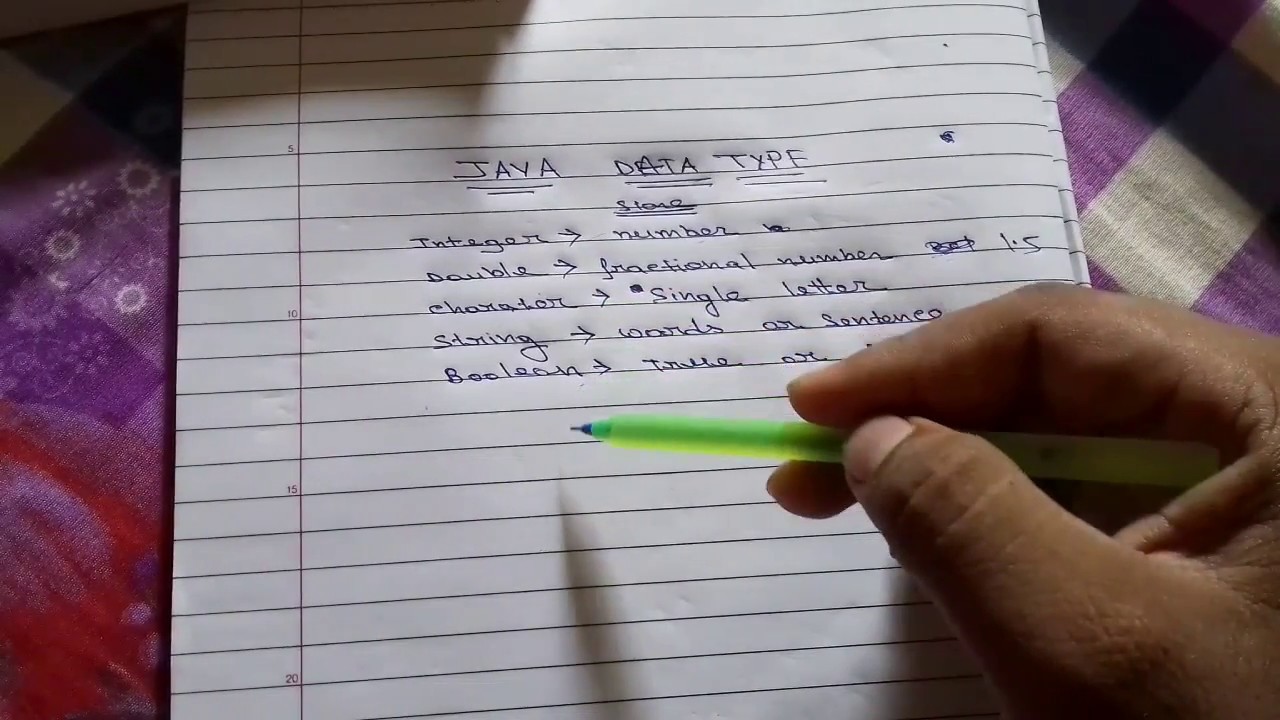 5
JAVA DATA TYPE
Store
Integer → number
Double → fractional number 1.5
10
charator → Single letter
String → words or Sentence
Boolean → True or
15
20